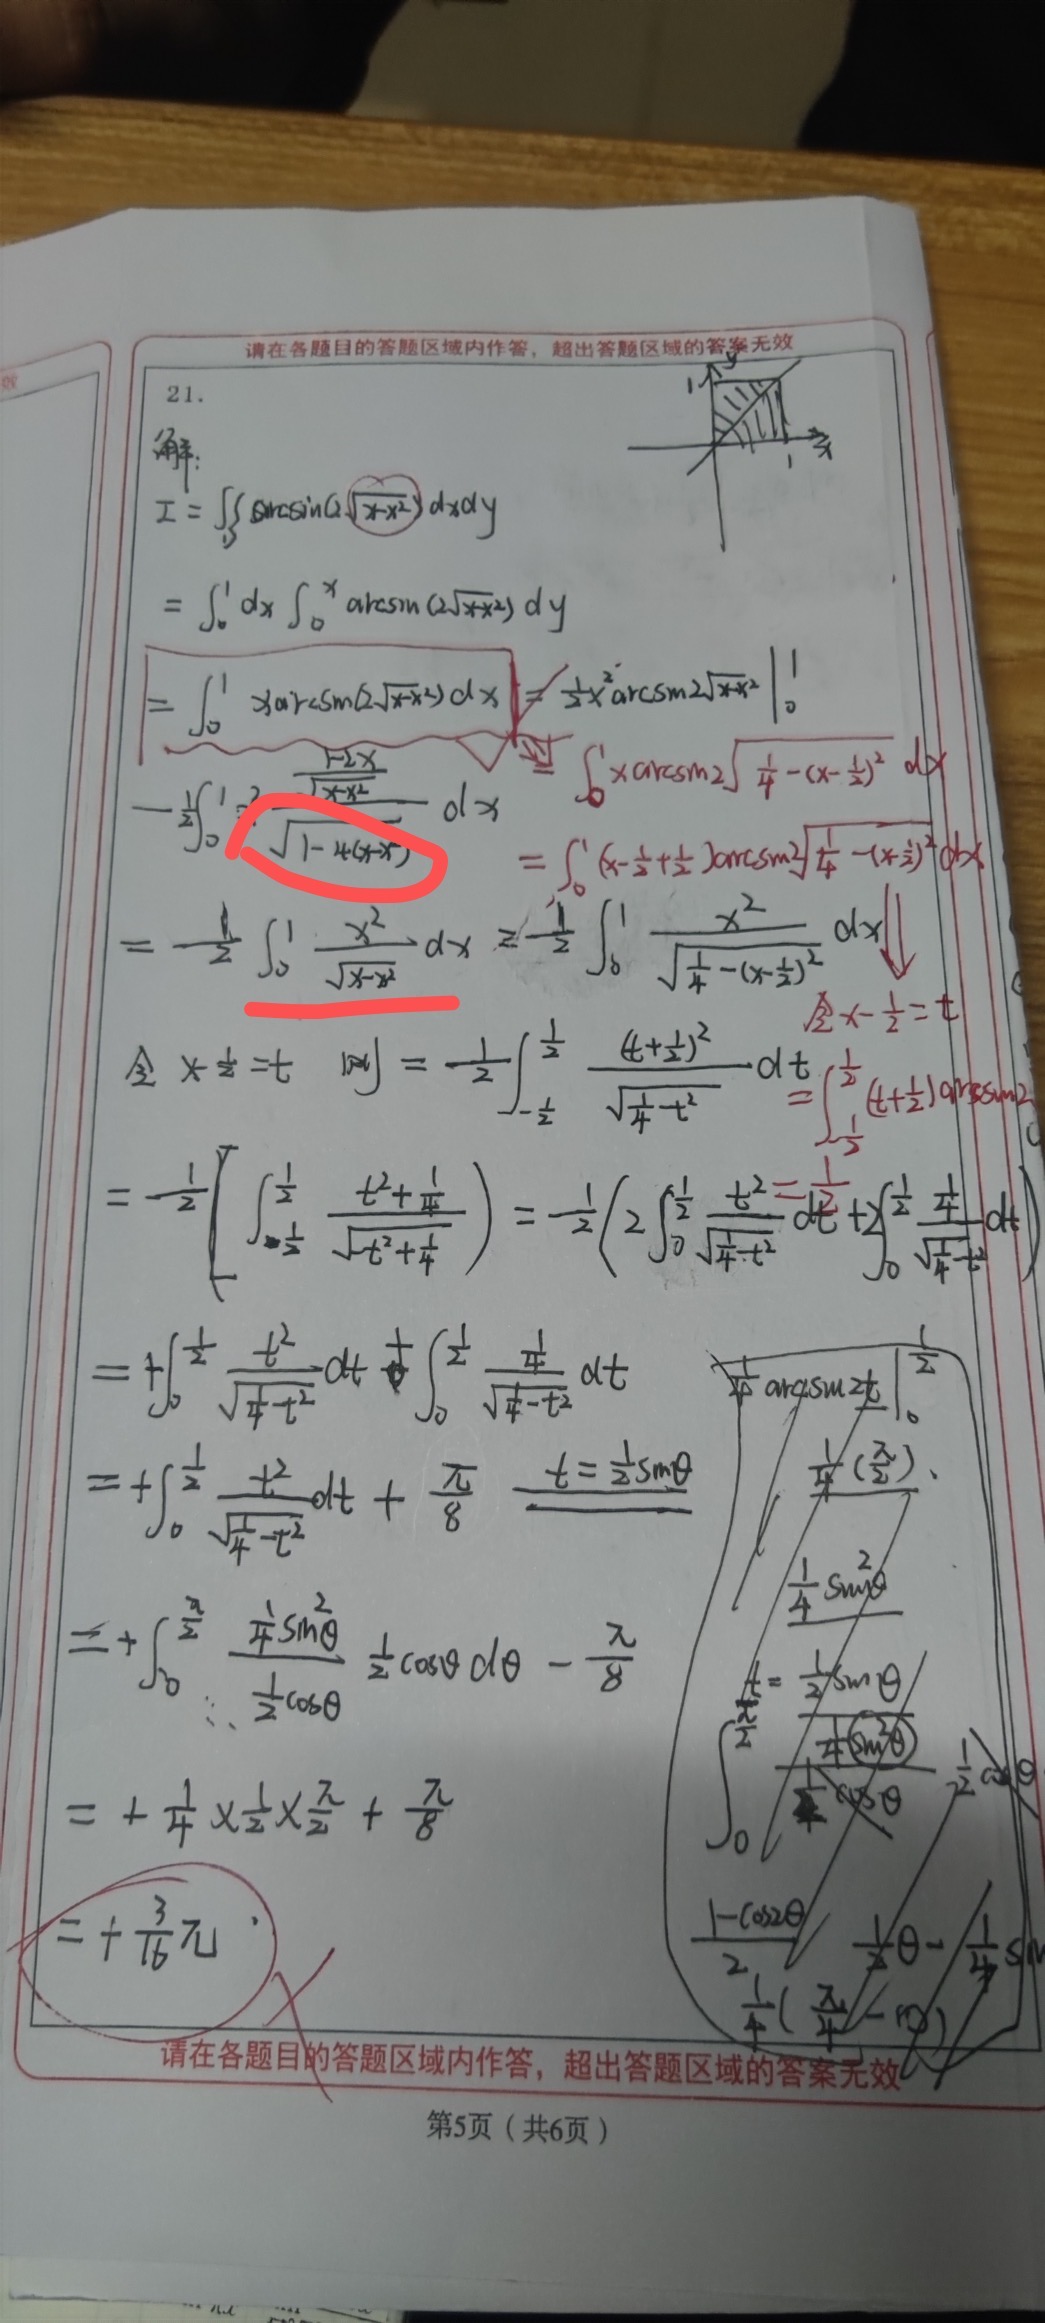 效
请在各题目的答题区域内作答，超出答题区域的答案无效
21.
y
1
1
x
解:
I = ∬_D arcsin(2√(x-x²)) dxdy
= ∫₀¹ dx ∫₀ˣ arcsin(2√(x-x²)) dy
= ∫₀¹ x arcsin(2√(x-x²)) dx = ½x² arcsin2√(x-x²) |₀¹
- ½∫₀¹ x² ((1-2x)/√(x-x²))/√(1-4(x-x²)) dx
= ∫₀¹ x arcsin2√(¼-(x-½)²) dx
= ∫₀¹ (x-½+½) arcsin2√(¼-(x-½)²) dx
= -½ ∫₀¹ x²/√(x-x²) dx = -½ ∫₀¹ x²/√(¼-(x-½)²) dx
令 x-½=t
令 x-½=t 则 = -½ ∫_{-½}^{½} (t+½)²/√(¼-t²) dt
= ∫_{-½}^{½} (t+½) arcsin2
= ½
= -½ [∫_{-½}^{½} (t²+¼)/√(-t²+¼)) = -½ (2∫₀^{½} t²/√(¼-t²) dt + 2∫₀^{½} ¼/√(¼-t²) dt)
= +∫₀^{½} t²/√(¼-t²) dt + ∫₀^{½} ¼/√(¼-t²) dt
¼ arcsin2t |₀^{½}
= +∫₀^{½} t²/√(¼-t²) dt + π/8 t=½sinθ
¼(π/2).
¼ sin²θ
= +∫₀^{π/2} ¼sin²θ/(½cosθ) ½cosθ dθ - π/8
t = ½ sinθ
∫₀^{π/2} ¼sin²θ/(½cosθ) ½cosθ
= + ¼ × ½ × π/2 + π/8
(1-cos2θ)/2 ½θ - ¼ sin
= + 3/16 π
请在各题目的答题区域内作答，超出答题区域的答案无效
第5页（共6页）